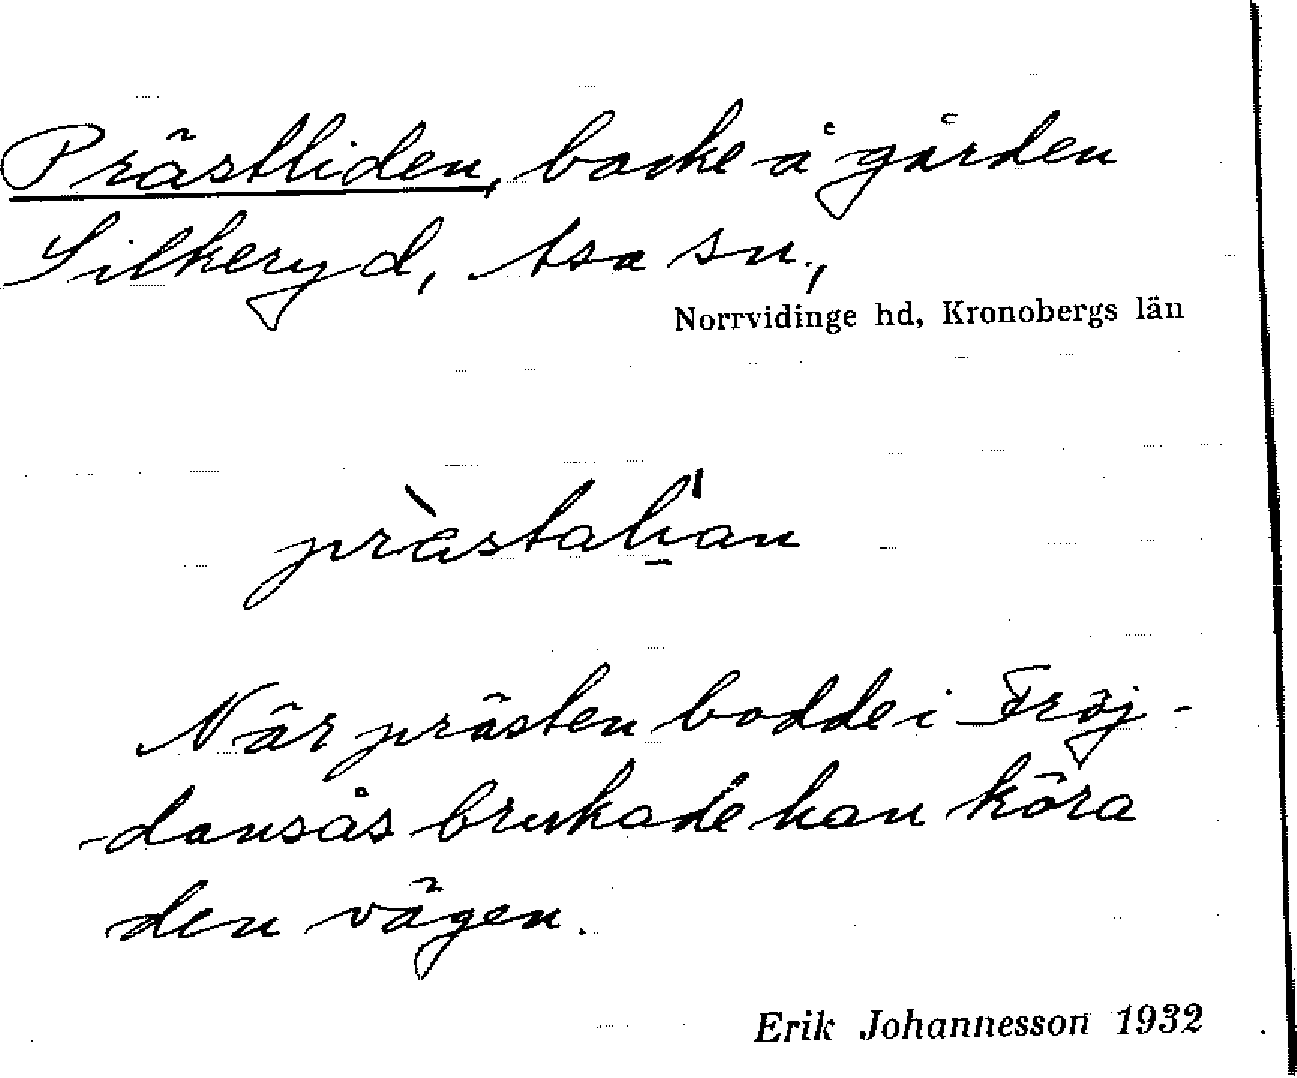 Prästliden, backe å gården
Silkeryd, Asa sn.,
Norrvidinge hd, Kronobergs län
När prästen bodde i Fröj-
dansås brukade han köra
den vägen.
Erik Johannesson 1932